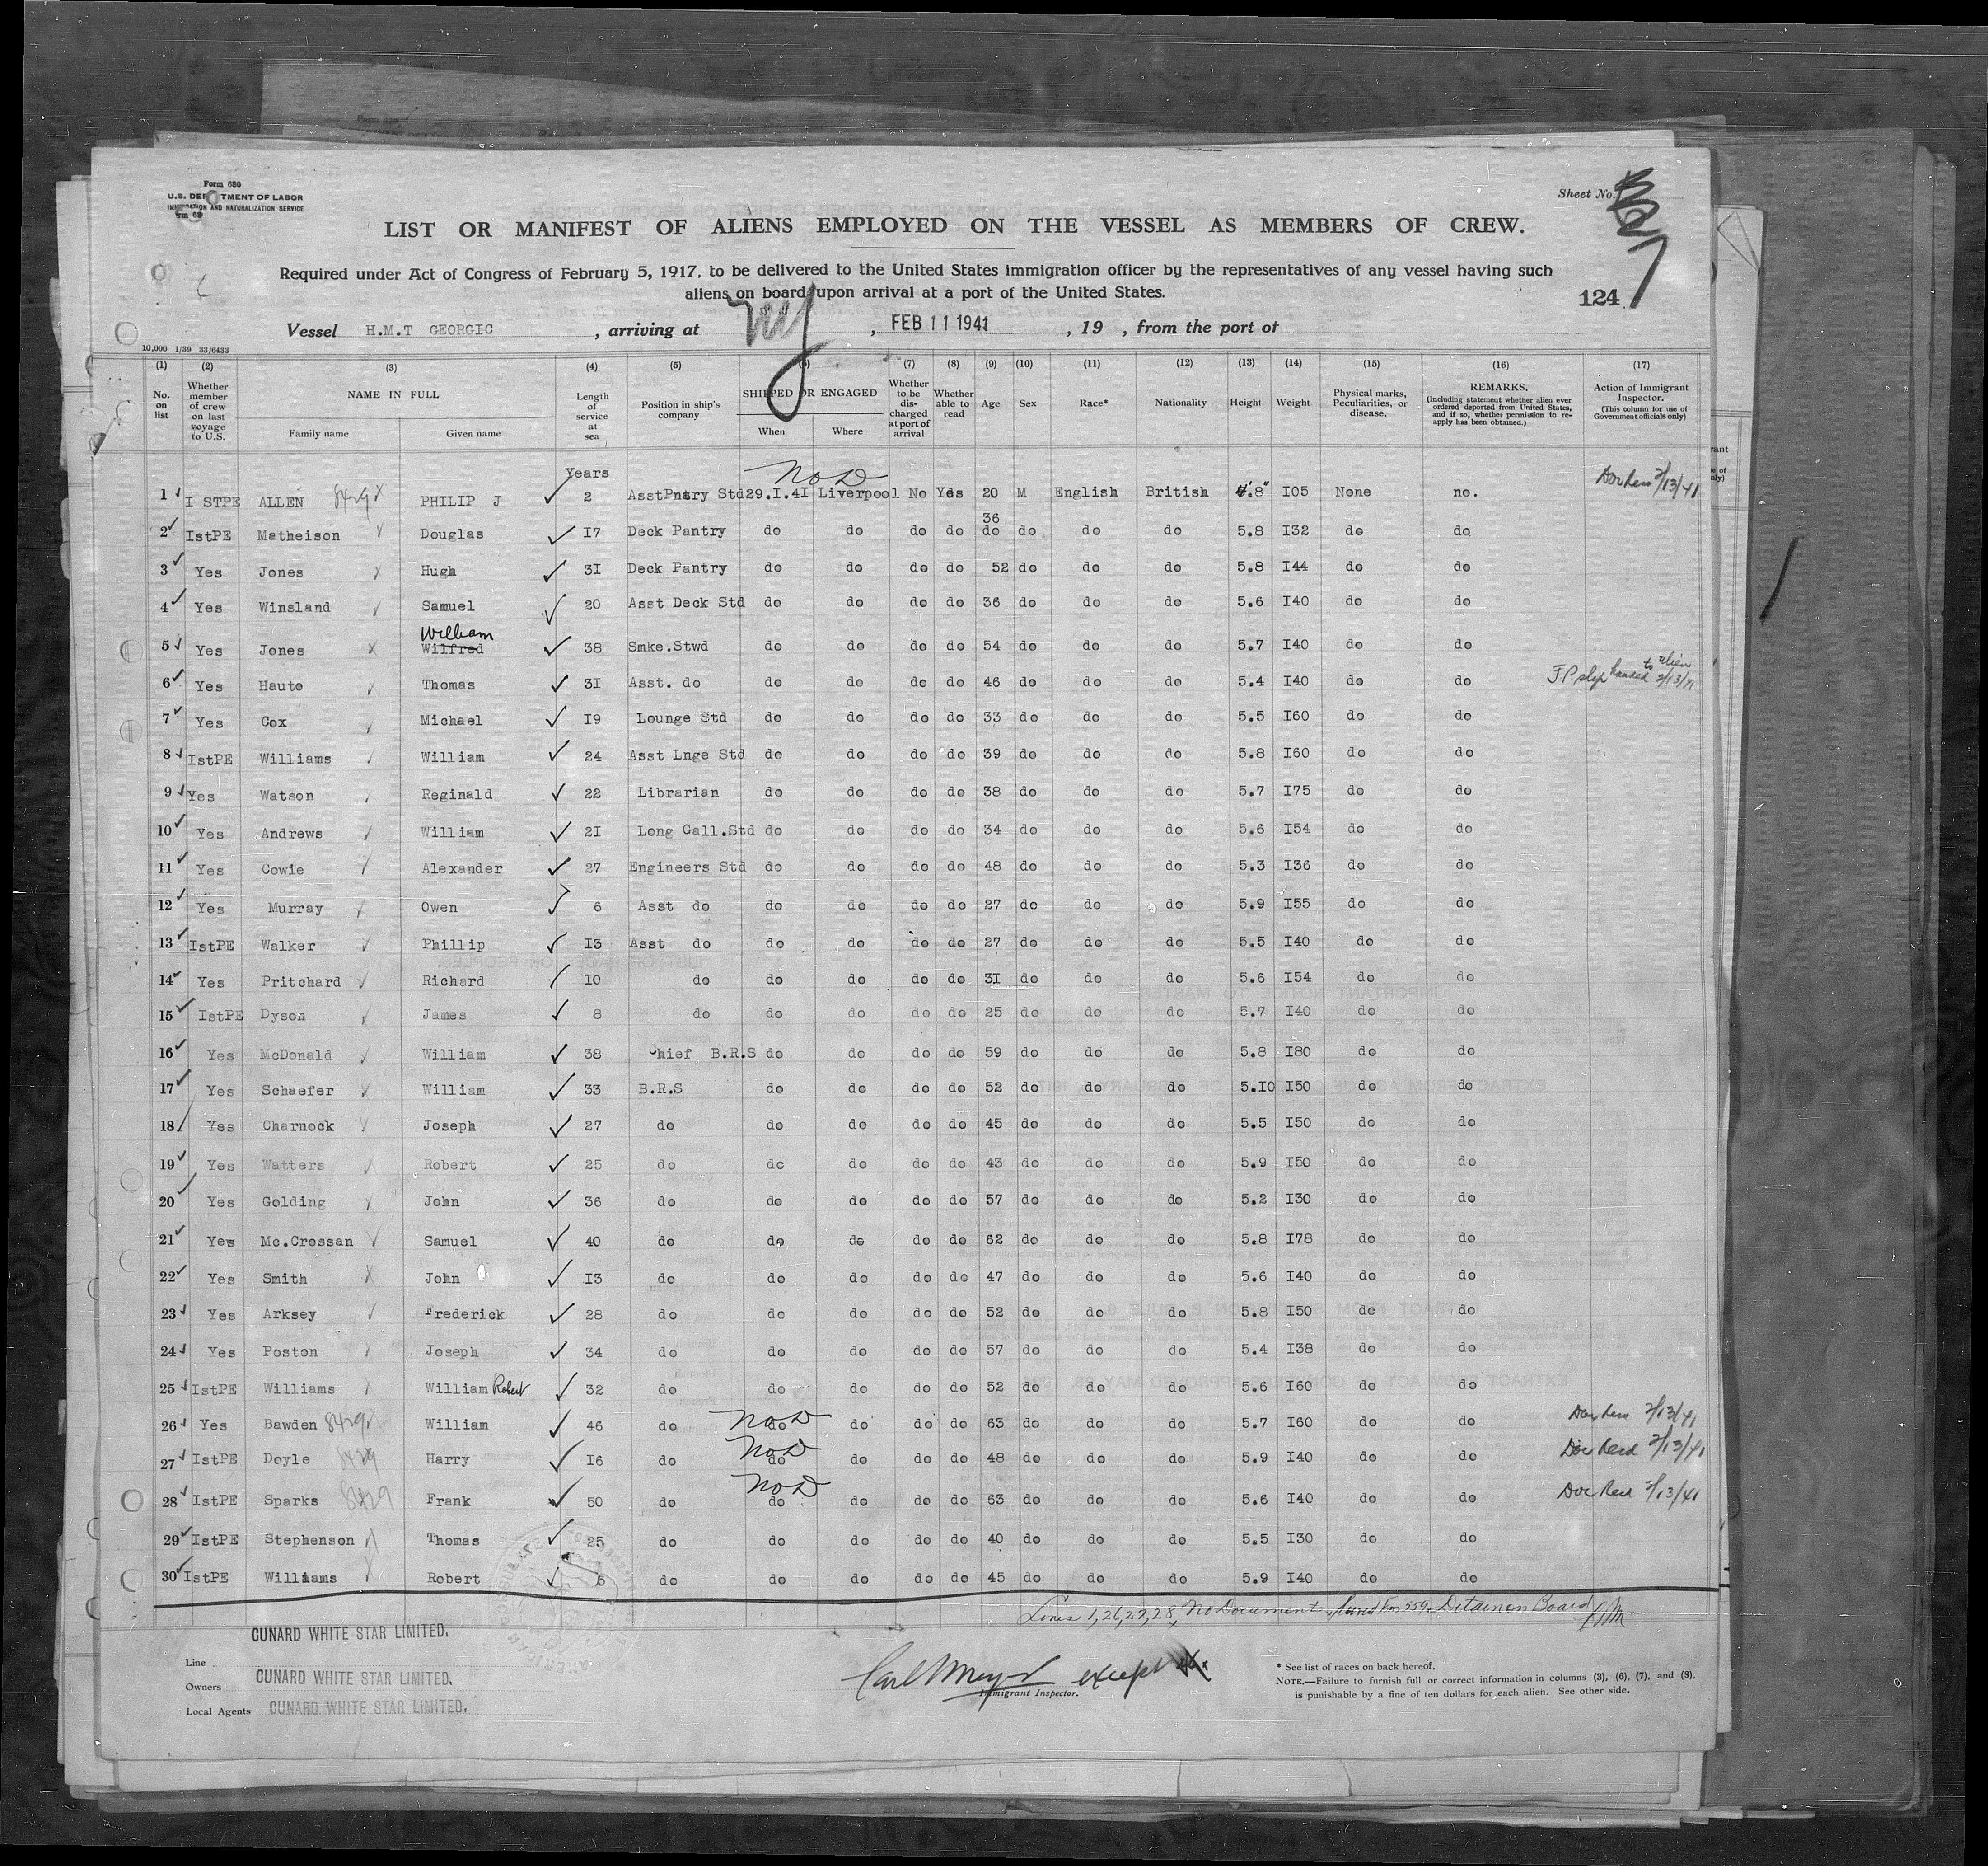 Form 680
U.S. DEP TMENT OF LABOR
IMMIGRATION AND NATURALIZATION SERVICE
Sheet No.
LIST OR MANIFEST OF ALIENS EMPLOYED ON THE VESSEL AS MEMBERS OF CREW.
Required under Act of Congress of February 5, 1917, to be delivered to the United States immigration officer by the representatives of any vessel having such
aliens on board upon arrival at a port of the United States.
124
7
Vessel H.M.T GEORGIC , arriving at NY , FEB 11 1941 , 19 , from the port of
10,000 1/39 33/6433
(1) (2) (3) (4) (5) (6) (7) (8) (9) (10) (11) (12) (13) (14) (15) (16) (17)
No. on list Whether member of crew on last voyage to U.S. NAME IN FULL Family name Given name Length of service at sea Position in ship's company SHIPPED OR ENGAGED When Where Whether to be discharged at port of arrival Whether able to read Age Sex Race* Nationality Height Weight Physical marks, Peculiarities, or disease. REMARKS. (Including statement whether alien ever ordered deported from United States, and if so, whether permission to reapply has been obtained.) Action of Immigrant Inspector. (This column for use of Government officials only)
Years NOD
1 I STPE ALLEN 8429 PHILIP J 2 AsstPntry Std 29.I.4I Liverpool No Yes 20 M English British 4'.8" I05 None no. 2/13/41
36
2 IstPE Matheison Douglas I7 Deck Pantry do do do do do do do do 5.8 I32 do do
3 Yes Jones Hugh 3I Deck Pantry do do do do 52 do do do 5.8 I44 do do
4 Yes Winsland Samuel 20 Asst Deck Std do do do do 36 do do do 5.6 I40 do do
William
5 Yes Jones Wilfred 38 Smke.Stwd do do do do 54 do do do 5.7 I40 do do
6 Yes Haute Thomas 3I Asst. do do do do do 46 do do do 5.4 I40 do do slip handed to alien 2/13/41
7 Yes Cox Michael I9 Lounge Std do do do do 33 do do do 5.5 I60 do do
8 IstPE Williams William 24 Asst Lnge Std do do do do 39 do do do 5.8 I60 do do
9 Yes Watson Reginald 22 Librarian do do do do 38 do do do 5.7 I75 do do
10 Yes Andrews William 2I Long Gall.Std do do do do 34 do do do 5.6 I54 do do
11 Yes Cowie Alexander 27 Engineers Std do do do do 48 do do do 5.3 I36 do do
12 Yes Murray Owen 6 Asst do do do do do 27 do do do 5.9 I55 do do
13 IstPE Walker Phillip I3 Asst do do do do do 27 do do do 5.5 I40 do do
14 Yes Pritchard Richard I0 do do do do do 3I do do do 5.6 I54 do do
15 IstPE Dyson James 8 do do do do do 25 do do do 5.7 I40 do do
16 Yes McDonald William 38 Chief B.R.S do do do do 59 do do do 5.8 I80 do do
17 Yes Schaefer William 33 B.R.S do do do do 52 do do do 5.I0 I50 do do
18 Yes Charnock Joseph 27 do do do do do 45 do do do 5.5 I50 do do
19 Yes Watters Robert 25 do do do do do 43 do do do 5.9 I50 do do
20 Yes Golding John 36 do do do do do 57 do do do 5.2 I30 do do
21 Yes Mc.Crossan Samuel 40 do do do do do 62 do do do 5.8 I78 do do
22 Yes Smith John I3 do do do do do 47 do do do 5.6 I40 do do
23 Yes Arksey Frederick 28 do do do do do 52 do do do 5.8 I50 do do
24 Yes Poston Joseph 34 do do do do do 57 do do do 5.4 I38 do do
25 IstPE Williams William Robert 32 do do do do do 52 do do do 5.6 I60 do do
26 Yes Bawden 8429 William 46 do NOD do do do do 63 do do do 5.7 I60 do do 2/13/41
27 IstPE Doyle 8429 Harry I6 do NOD do do do do 48 do do do 5.9 I40 do do Doc Recd 2/13/41
28 IstPE Sparks 8429 Frank 50 do NOD do do do do 63 do do do 5.6 I40 do do Doc Recd 2/13/41
29 IstPE Stephenson Thomas 25 do do do do do 40 do do do 5.5 I30 do do
30 IstPE Williams Robert 6 do do do do do 45 do do do 5.9 I40 do do
Lines 1,26,27,28, No Document Served Fm 559. Detained on Board
CUNARD WHITE STAR LIMITED.
Line
CUNARD WHITE STAR LIMITED.
Owners
CUNARD WHITE STAR LIMITED.
Local Agents
Carl except
Immigrant Inspector.
* See list of races on back hereof.
NOTE.—Failure to furnish full or correct information in columns (3), (6), (7), and (8),
is punishable by a fine of ten dollars for each alien. See other side.